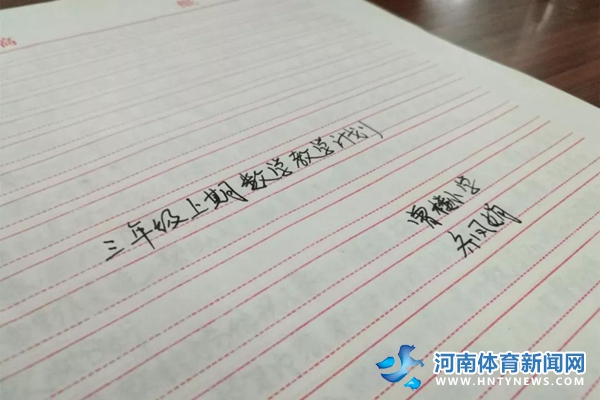 三年级上期数学教学计划
河南体育新闻网
WWW.HNTYNEWS.COM